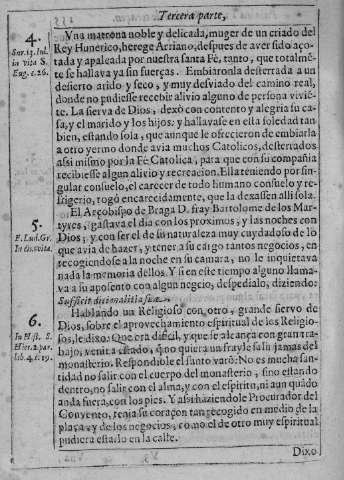 Tercera parte,
4.
Sur. 13. Iul.
in vita S.
Eug. c. 26.
Vna matrona noble y delicada, muger de un criado del
Rey Hunerico, herege Arriano, despues de aver sido aço-
tada y apaleada por nuestra santa Fè, tanto, que totalmẽ-
te se hallava ya sin fuerças. Embiaronla desterrada a un
desierto arido y seco, y muy desviado del camino real,
donde no pudiesse recebir alivio alguno de persona vivie-
te. La sierva de Dios, dexò con contento y alegria su ca-
sa, y el marido y los hijos: y hallavase en esta soledad tan
bien, estando sola, que aunque le ofrecieron de embiarla
a otro yermo donde avia muchos Catolicos, desterrados
assi mismo por la Fè Catolica, para que con su compañia
recibiesse algun alivio y recreacion. Ella teniendo por sin-
gular consuelo, el carecer de todo humano consuelo y re-
frigerio, rogò encarecidamente, que la dexassen alli sola.
5.
F. Lud. Gr.
in eius vita.
El Arçobispo de Braga D. fray Bartolome de los Mar-
tyres, gastava el dia con los proximos, y las noches con
Dios; y con ser el de su naturaleza muy cuydadoso de lo
que avia de hazer, y tener a su cargo tantos negocios, en
recogiendose a la noche en su camara, no le inquietava
nada la memoria dellos. Y si en este tiempo alguno llama-
va a su aposento con algun negoio, despedialo, diziendo:
Sufficit diei malitia sua.
6.
In Hist. S.
Hier. 2. par.
lib. 4. c. 19.
Hablando un Religioso con otro, grande siervo de
Dios, sobre el aprovechamiento espiritual de los Religio-
sos, le dixo: Que era dificil, y que se alcança con gran tra-
bajo, venir a estado, que no quiera un frayle salir jamas del
monasterio. Respondible el santo varõ: No es mucha san-
tidad no salir con el cuerpo del monasterio, sino estando
dentro, no salir con el alma, y con el espiritu, ni aun quãdo
anda fuera, con los pies. Y assi haziendole Procurador del
Convento, tenia su coraçon tan recogido en medio de la
plaça, y de los negocios, como el de otro muy espiritual
pudiera estarlo en la calle.
Dixo